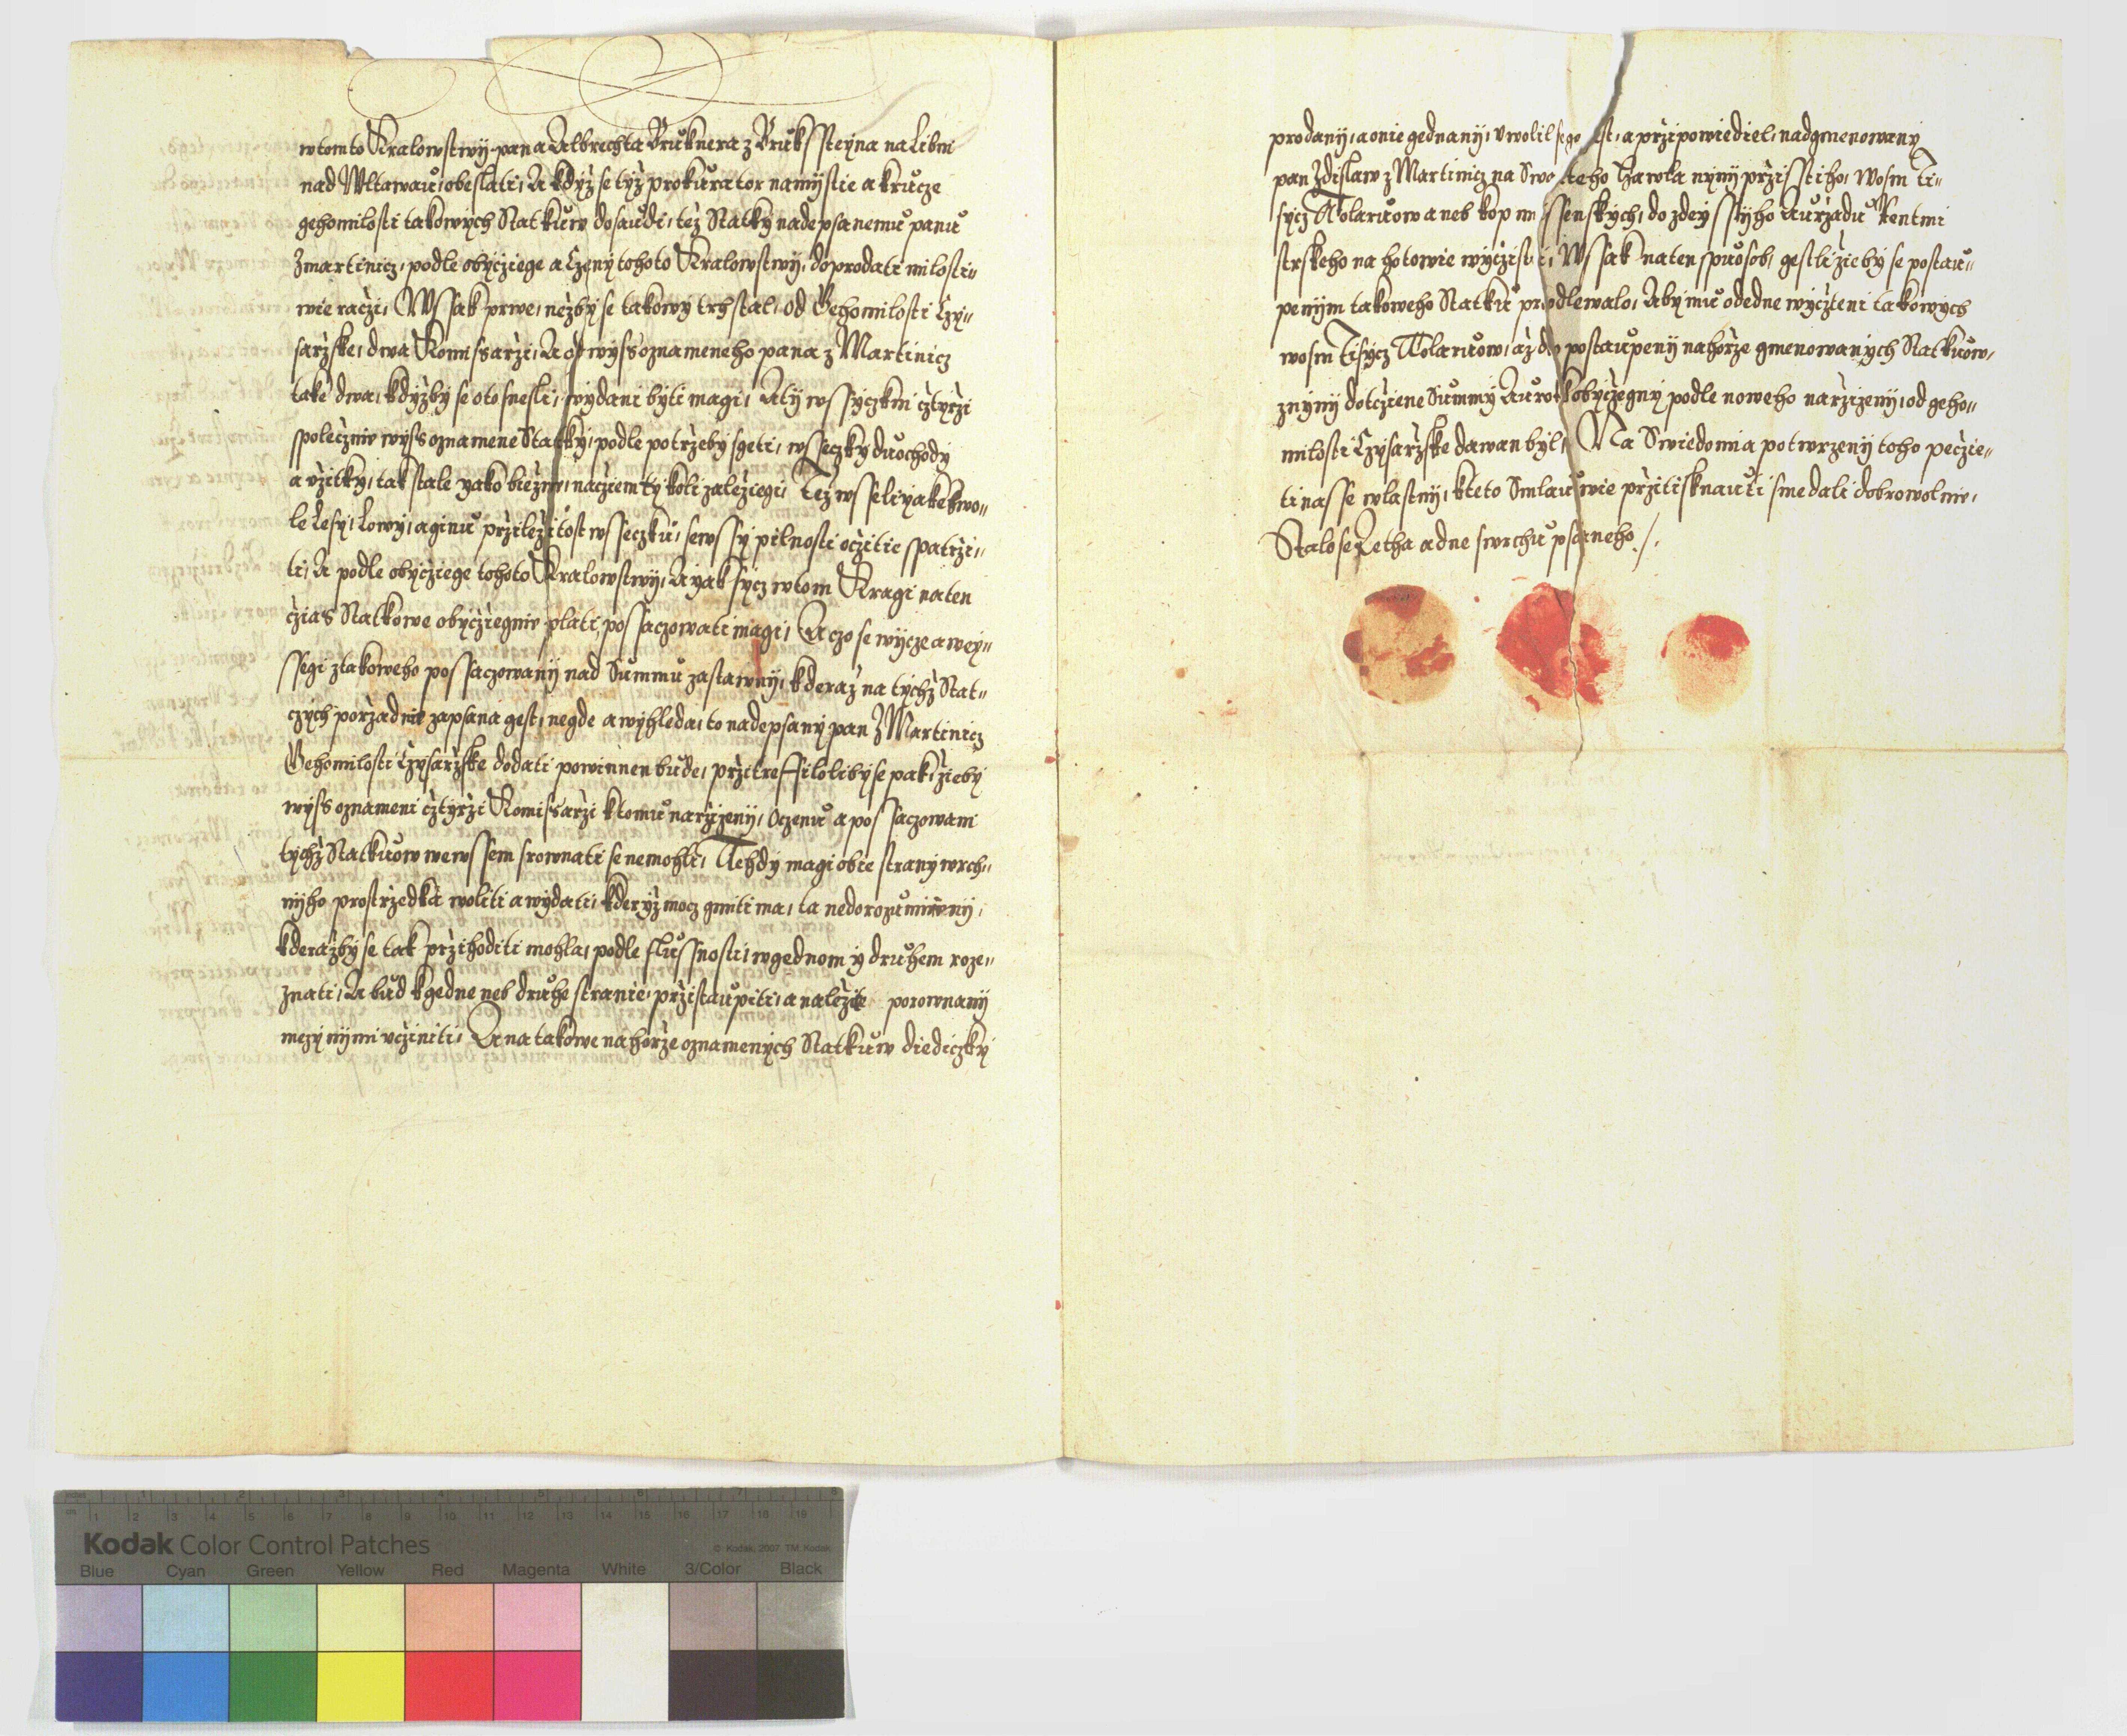 wtomto Kralowstwij pana Albrechta Bruknera z Bruksssteyna na Libni
nad Wltawau, obeslati, A kdyz se tyz prokurator namijstie a krucze
gehomilosti takowych Statkuw dosaudi, tez Statky nadepsanemu panu
Zmartinicz, podle obycziege a Czeny tohoto Kralowstwij, doprodati milosti-
wie raczi, Wssak prwe, nezby se takowy trh stal, od Gehomilosti Czy-
sarzske, dwa Komissarzi, A od wyss oznameneho pana z Martinicz
take dwa, kdyzby se oto snesli, wydani byti magi, A ty wssyczkni cztyrzi
spolecznie wyss oznamene Statky, podle potrzeby sgeti, wsseczky duochody
a uzitky, tak stale yako biezne, nacziemzkoli zaleziegi, Tez wsseliyakekwo-
le Lesy, Lowy, a ginu przilezitost wsseczku, sewssy pilnosti oczitie spatrzi-
ti, A podle obycziege tohoto Kralowstwij, A yak sycz wtom Kragi naten
czias Statkowe obycziegnie plati, possaczowati magi, A czo se wijcze a wey-
ssegi ztakoweho possaczowanij nad Summu zastawnij, kderaz na tychz Stat-
czych porzadnie zapsana gest, negde a wyhleda, to nadepsany pan Z Martinicz
Gehomilosti Czysarzske dodati powinnen bude, przitreffiloliby se pak, zieby
wyss oznameni cztyrzi Komissarzi ktomu narzizeny, Oczenu a possaczowani
tychz Statkuow wewssem srownati se nemohli, Tehdy magi obie strany wrch-
nijho prostrzedka woliti a wydati, kderyz mocz gmiti ma, ta nedorozumienij,
kderazby se tak przihoditi mohla, podle slussnosti, wgednom y druhem roze-
znati, A bud kgedne neb druhe stranie, przistaupiti, a nalezite porownanij
mezy nijmi ucziniti, A na takowe nahorze oznamenych Statkuw diediczky
prodanij, a onie gednanij, uwolil se gest, a przipowiediel, nadgmenowany
pan Zdislaw z Martinicz na Swateho Hawla nynij przisstiho, Wosm Ti-
sycz Tolaruow aneb kop missenskych, do zdeyssijho Aurzadu Rentmi
strskeho na hotowie wycziste, Wssak naten spuosob, gestlizieby se postau-
penijm takoweho Statku prodlewalo, Aby mu odedne wycziteni takowych
wosm Tisycz Tolaruow, az do postaupenij nahorze gmenowanych Statkuow,
znynij dotcziene Summy Aurok obyczegny podle noweho narzizenij, od geho-
milosti Czysarzske dawan byl, Na Swiedomi a potwrzenij toho peczie-
ti nasse wlastnij, kteto Smlauwie przitisknauti sme dali dobrowolnie,
Stalo se Letha a dne swrchu psaneho
Kodak Color Control Patches
© Kodak, 2007 TM: Kodak
Blue Cyan Green Yellow Red Magenta White 3/Color Black